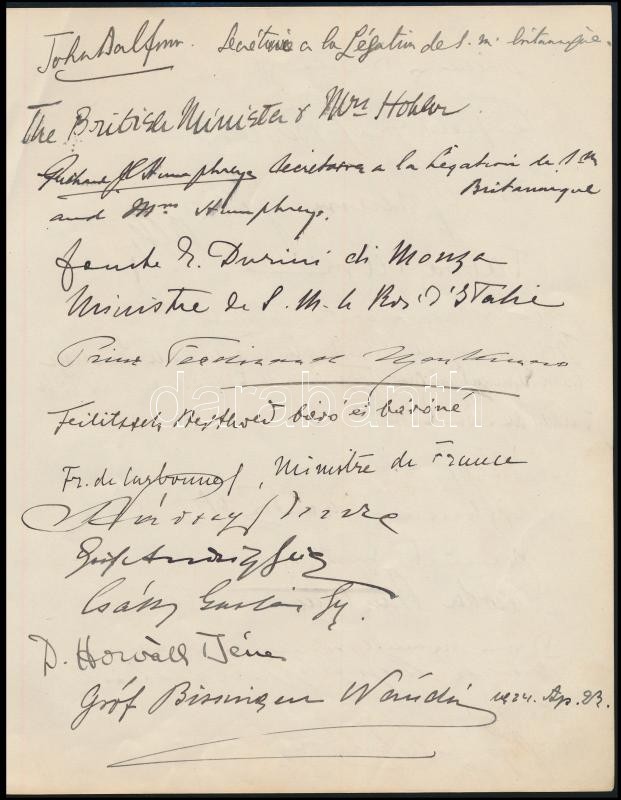 John Balfour. Secrétaire a la Légation de S. M. britannique.
The British Minister & Mrs Hohler.
Humphreys Secrétaire a la Légation de S M
Britannique
and Mrs Humphreys.
E. Durini di Monza
Ministre de S. M. le Roi d'Italie
Prinz Ferdinand Montenuovo
darabanth
Feilitzsch Berthold báró és báróné
Fr. de Carbonnel, Ministre de France
Andrássy
Gróf Andrássy Géza
Csáky Gy.
D. Horváth Jéne
Gróf Bissingen Nándor 1924. Ap. 23.